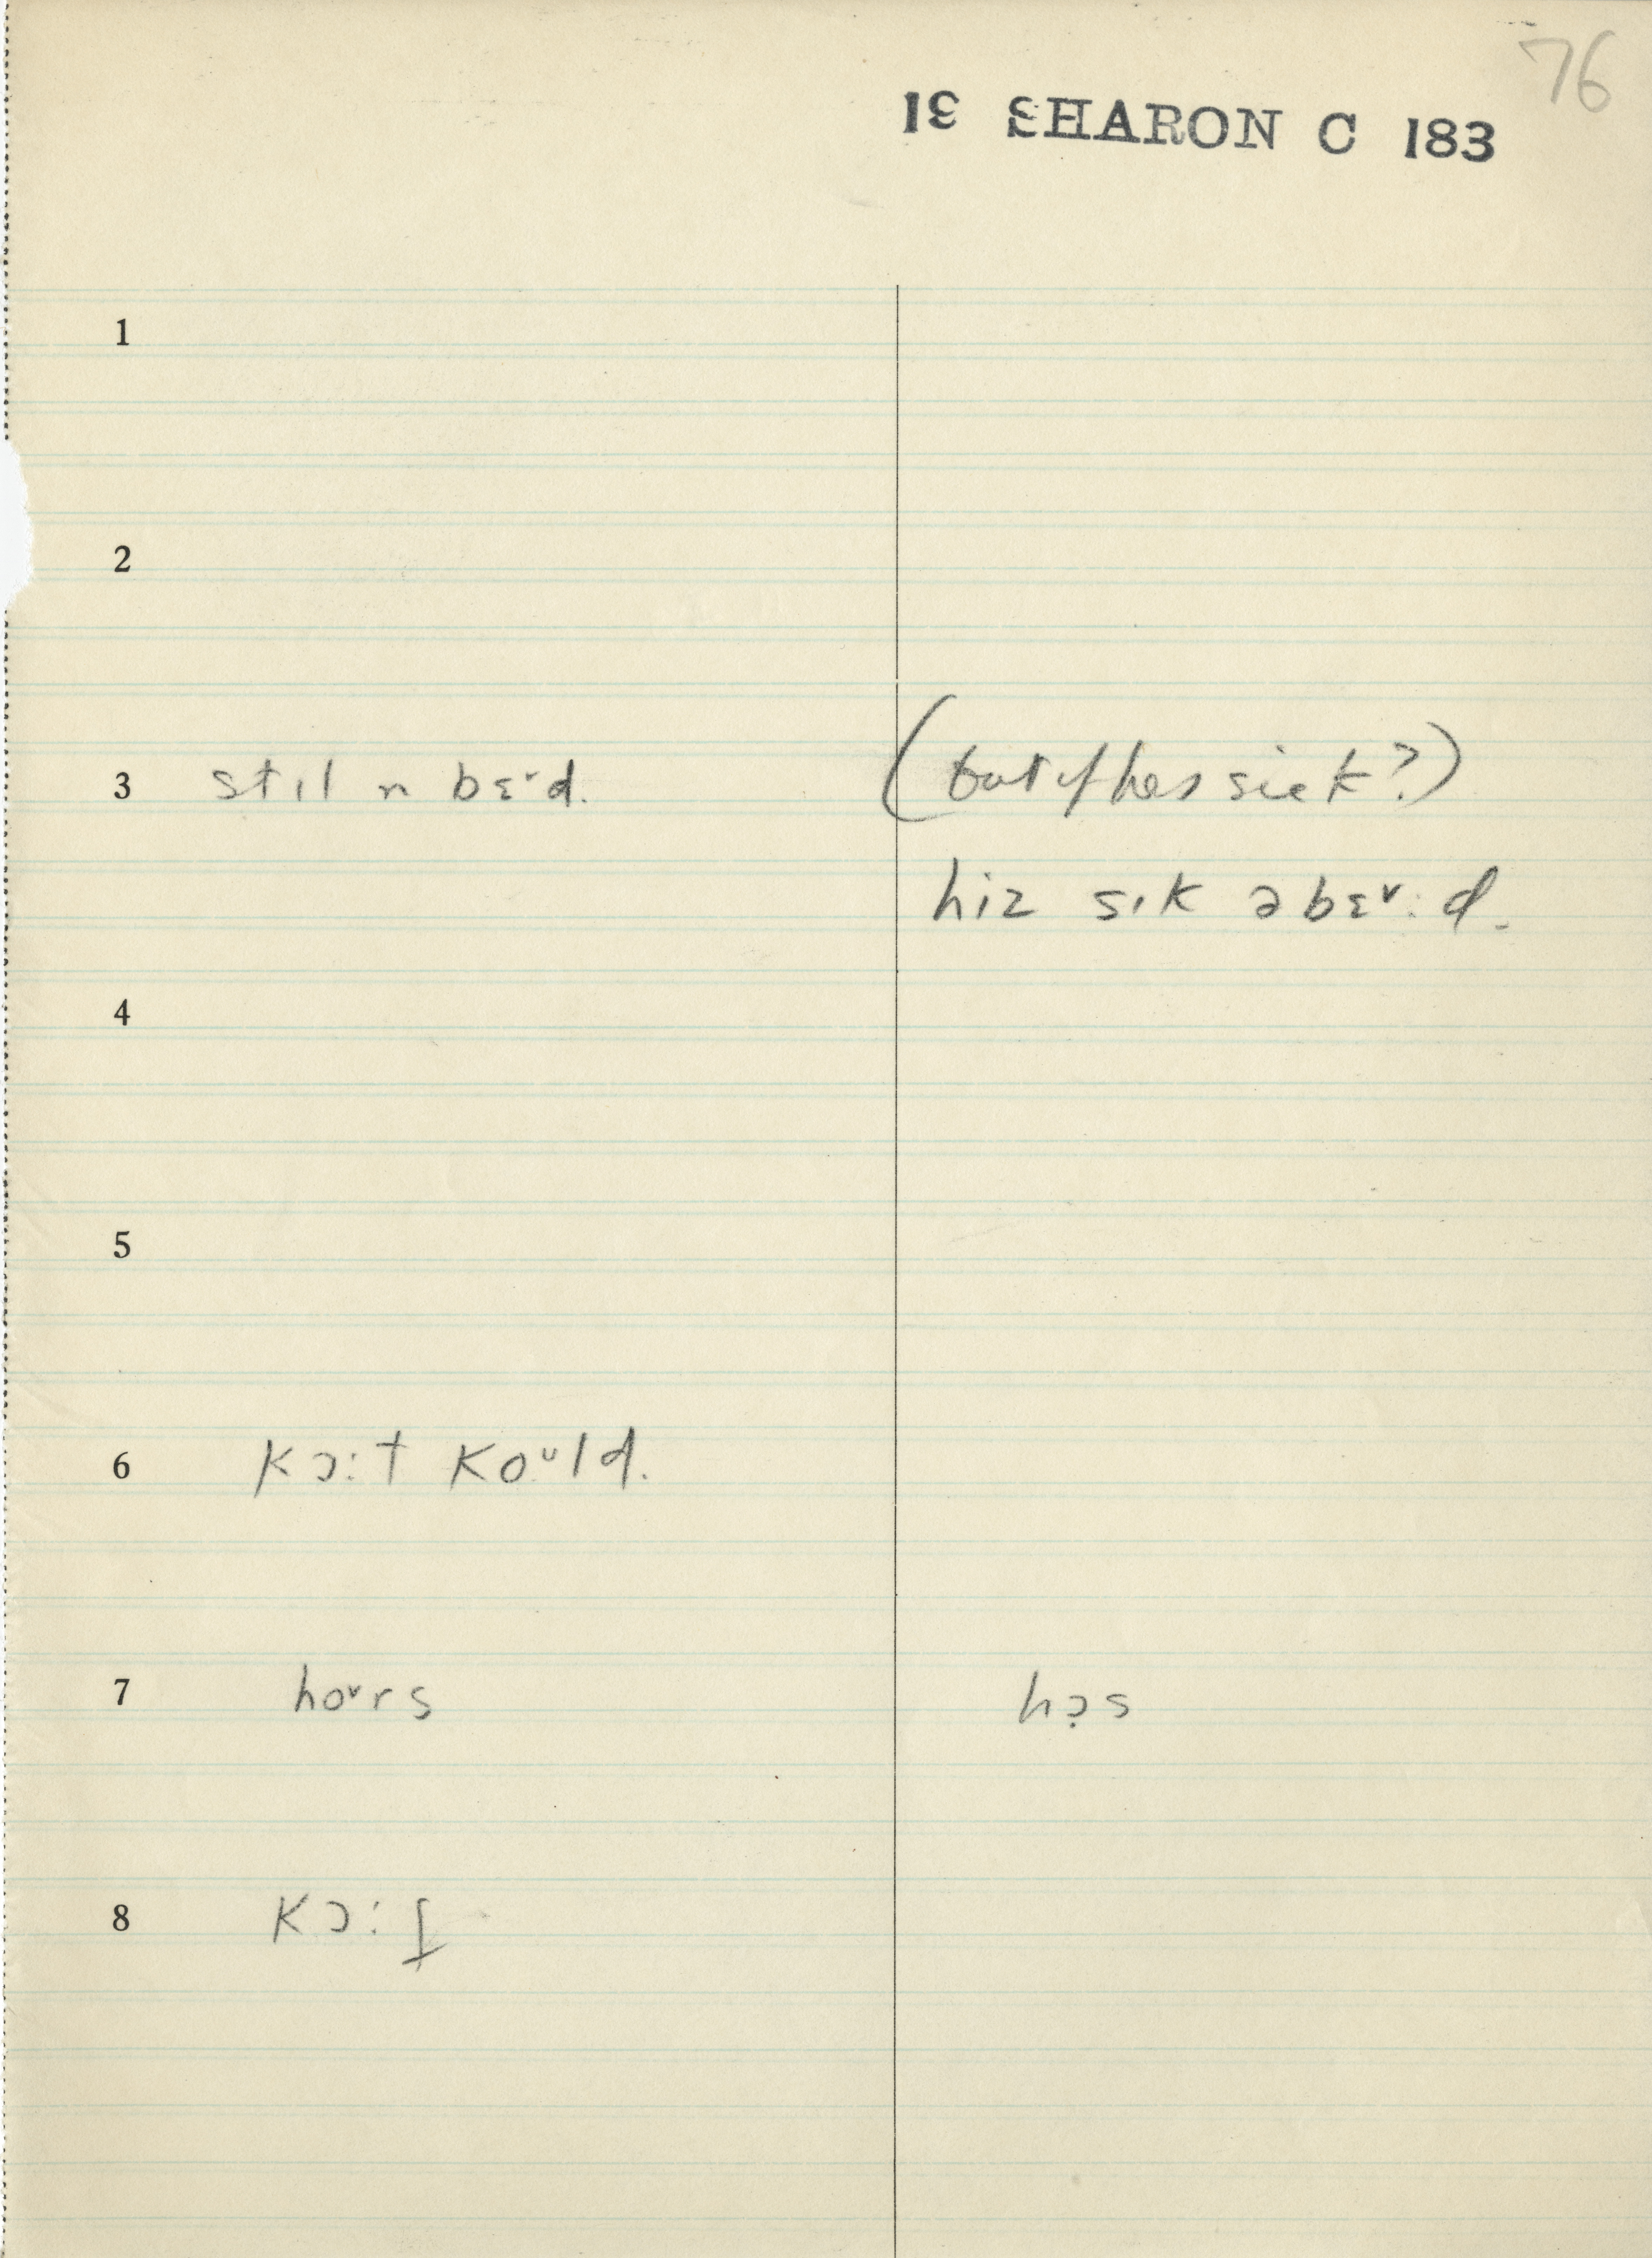 76
19 SHARON C 183
1
2
3 stɪl ɪn bɛᵛd. (but if hes sick?)
hiz sɪk əbɛᵛ:d.
4
5
6 kɔ:t koᵘld.
7 hoᵛrs hɔ̣s
8 kɔ:f